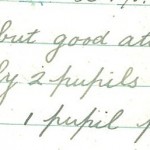 but good at
ly 2 pupils
1 pupil p